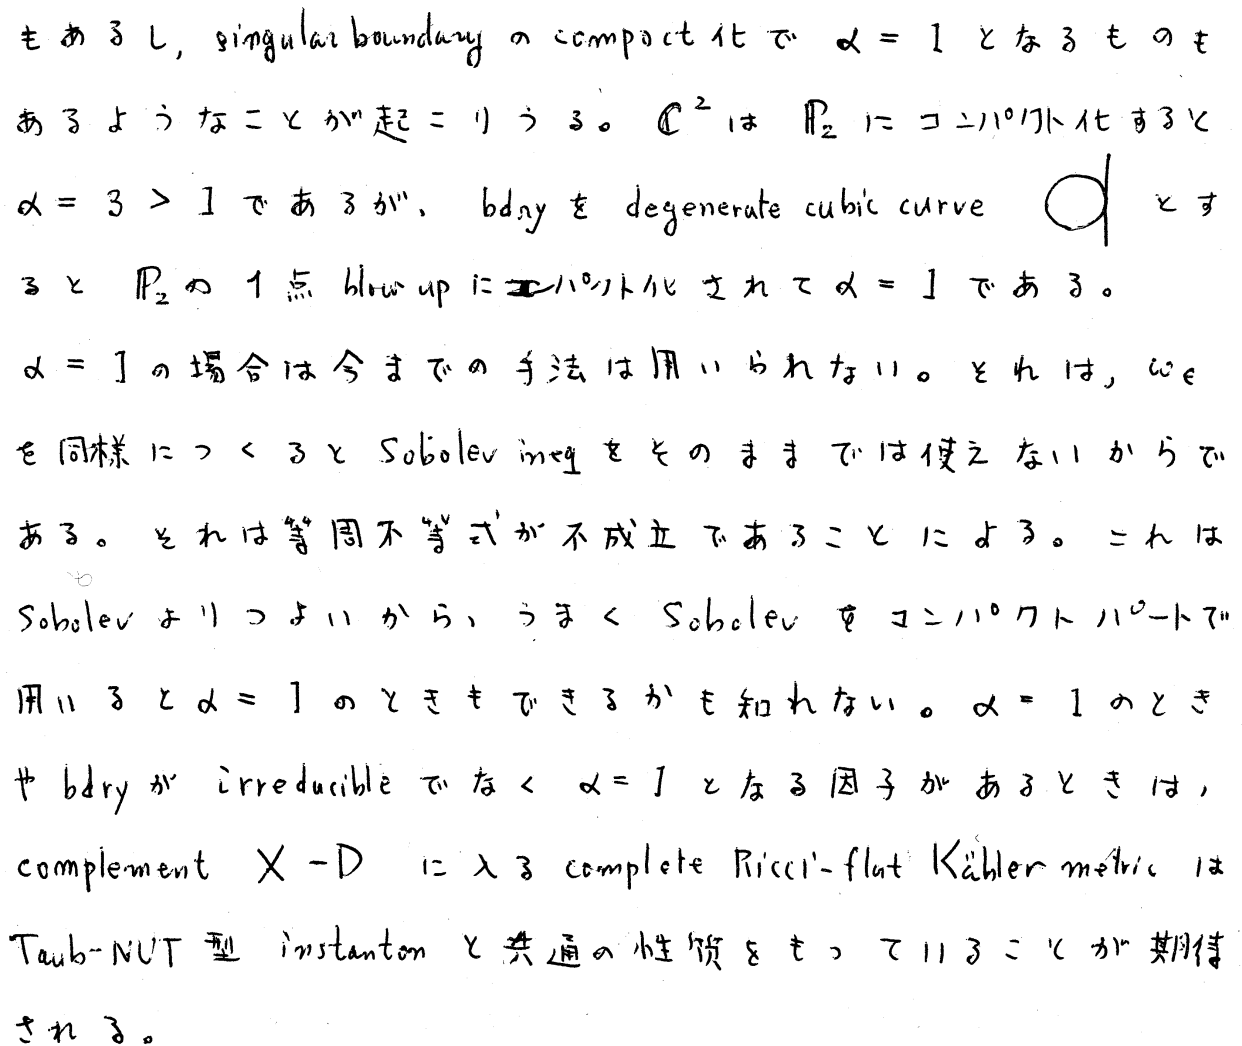 もあるし, singular boundary の compact 化で α = 1 となるものも
あるようなことが起こりうる。 ℂ² は ℙ₂ にコンパクト化すると
α = 3 > 1 であるが、 bdry を degenerate cubic curve とす
ると ℙ₂ の 1 点 blow up にコンパクト化されて α = 1 である。
α = 1 の場合は今までの手法は用いられない。それは, ωε
を同様につくると Sobolev ineq をそのままでは使えないからで
ある。それは等周不等式が不成立であることによる。これは
Sobolev よりつよいから、うまく Sobolev をコンパクトパートで
用いると α = 1 のときもできるかも知れない。 α = 1 のとき
や bdry が irreducible でなく α = 1 となる因子があるときは,
complement X - D に入る complete Ricci-flat Kähler metric は
Taub-NUT 型 instanton と共通の性質をもっていることが期待
される。